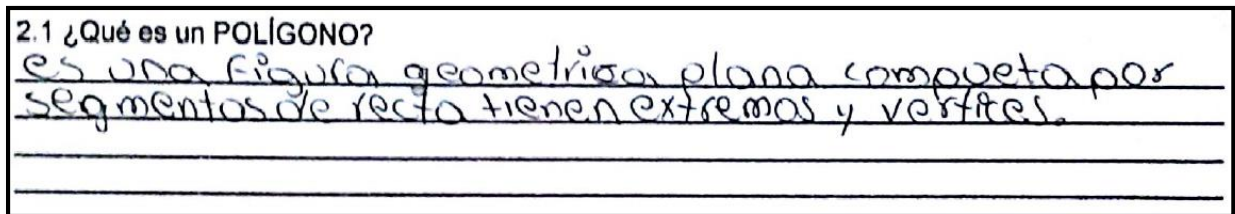 2.1 ¿Qué es un POLÍGONO?
es una figura geometrica plana compueta por
segmentos de recta tienen extremos y vertices.